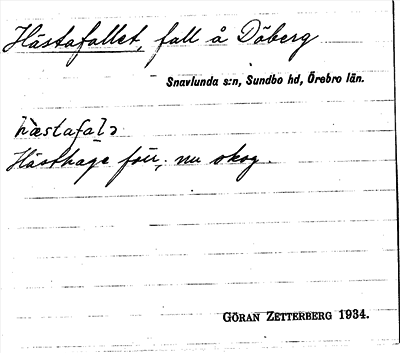 Hästafallet, fall å Döberg
Snavlunda s:n, Sundbo hd, Örebro län.
Hästhage förr, nu skog.
GÖRAN ZETTERBERG 1934.